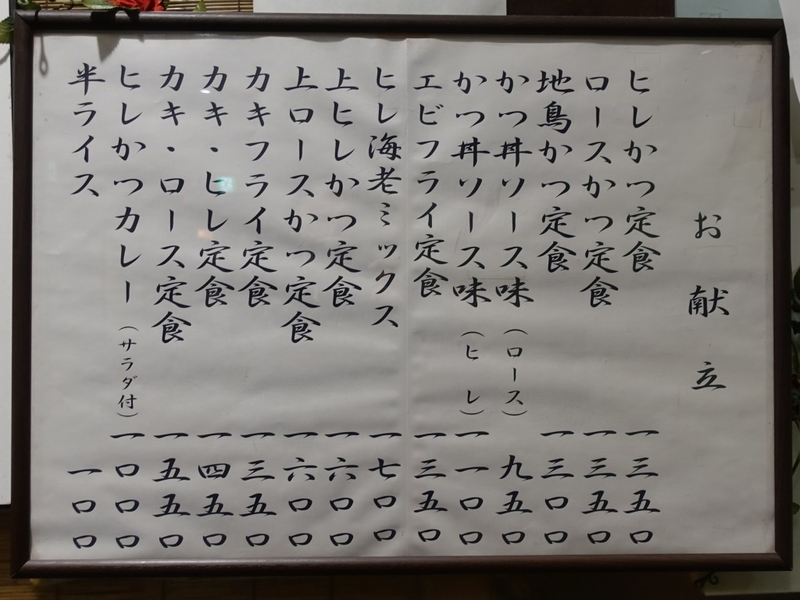 お献立
ヒレかつ定食 一三五〇
ロースかつ定食 一三五〇
地鳥かつ定食 一三〇〇
かつ丼ソース味(ロース) 九五〇
かつ丼ソース味(ヒレ) 一一〇〇
エビフライ定食 一三五〇
ヒレ海老ミックス 一七〇〇
上ヒレかつ定食 一六〇〇
上ロースかつ定食 一六〇〇
カキフライ定食 一三五〇
カキ・ヒレ定食 一四五〇
カキ・ロース定食 一五五〇
ヒレかつカレー(サラダ付) 一〇〇〇
半ライス 一〇〇